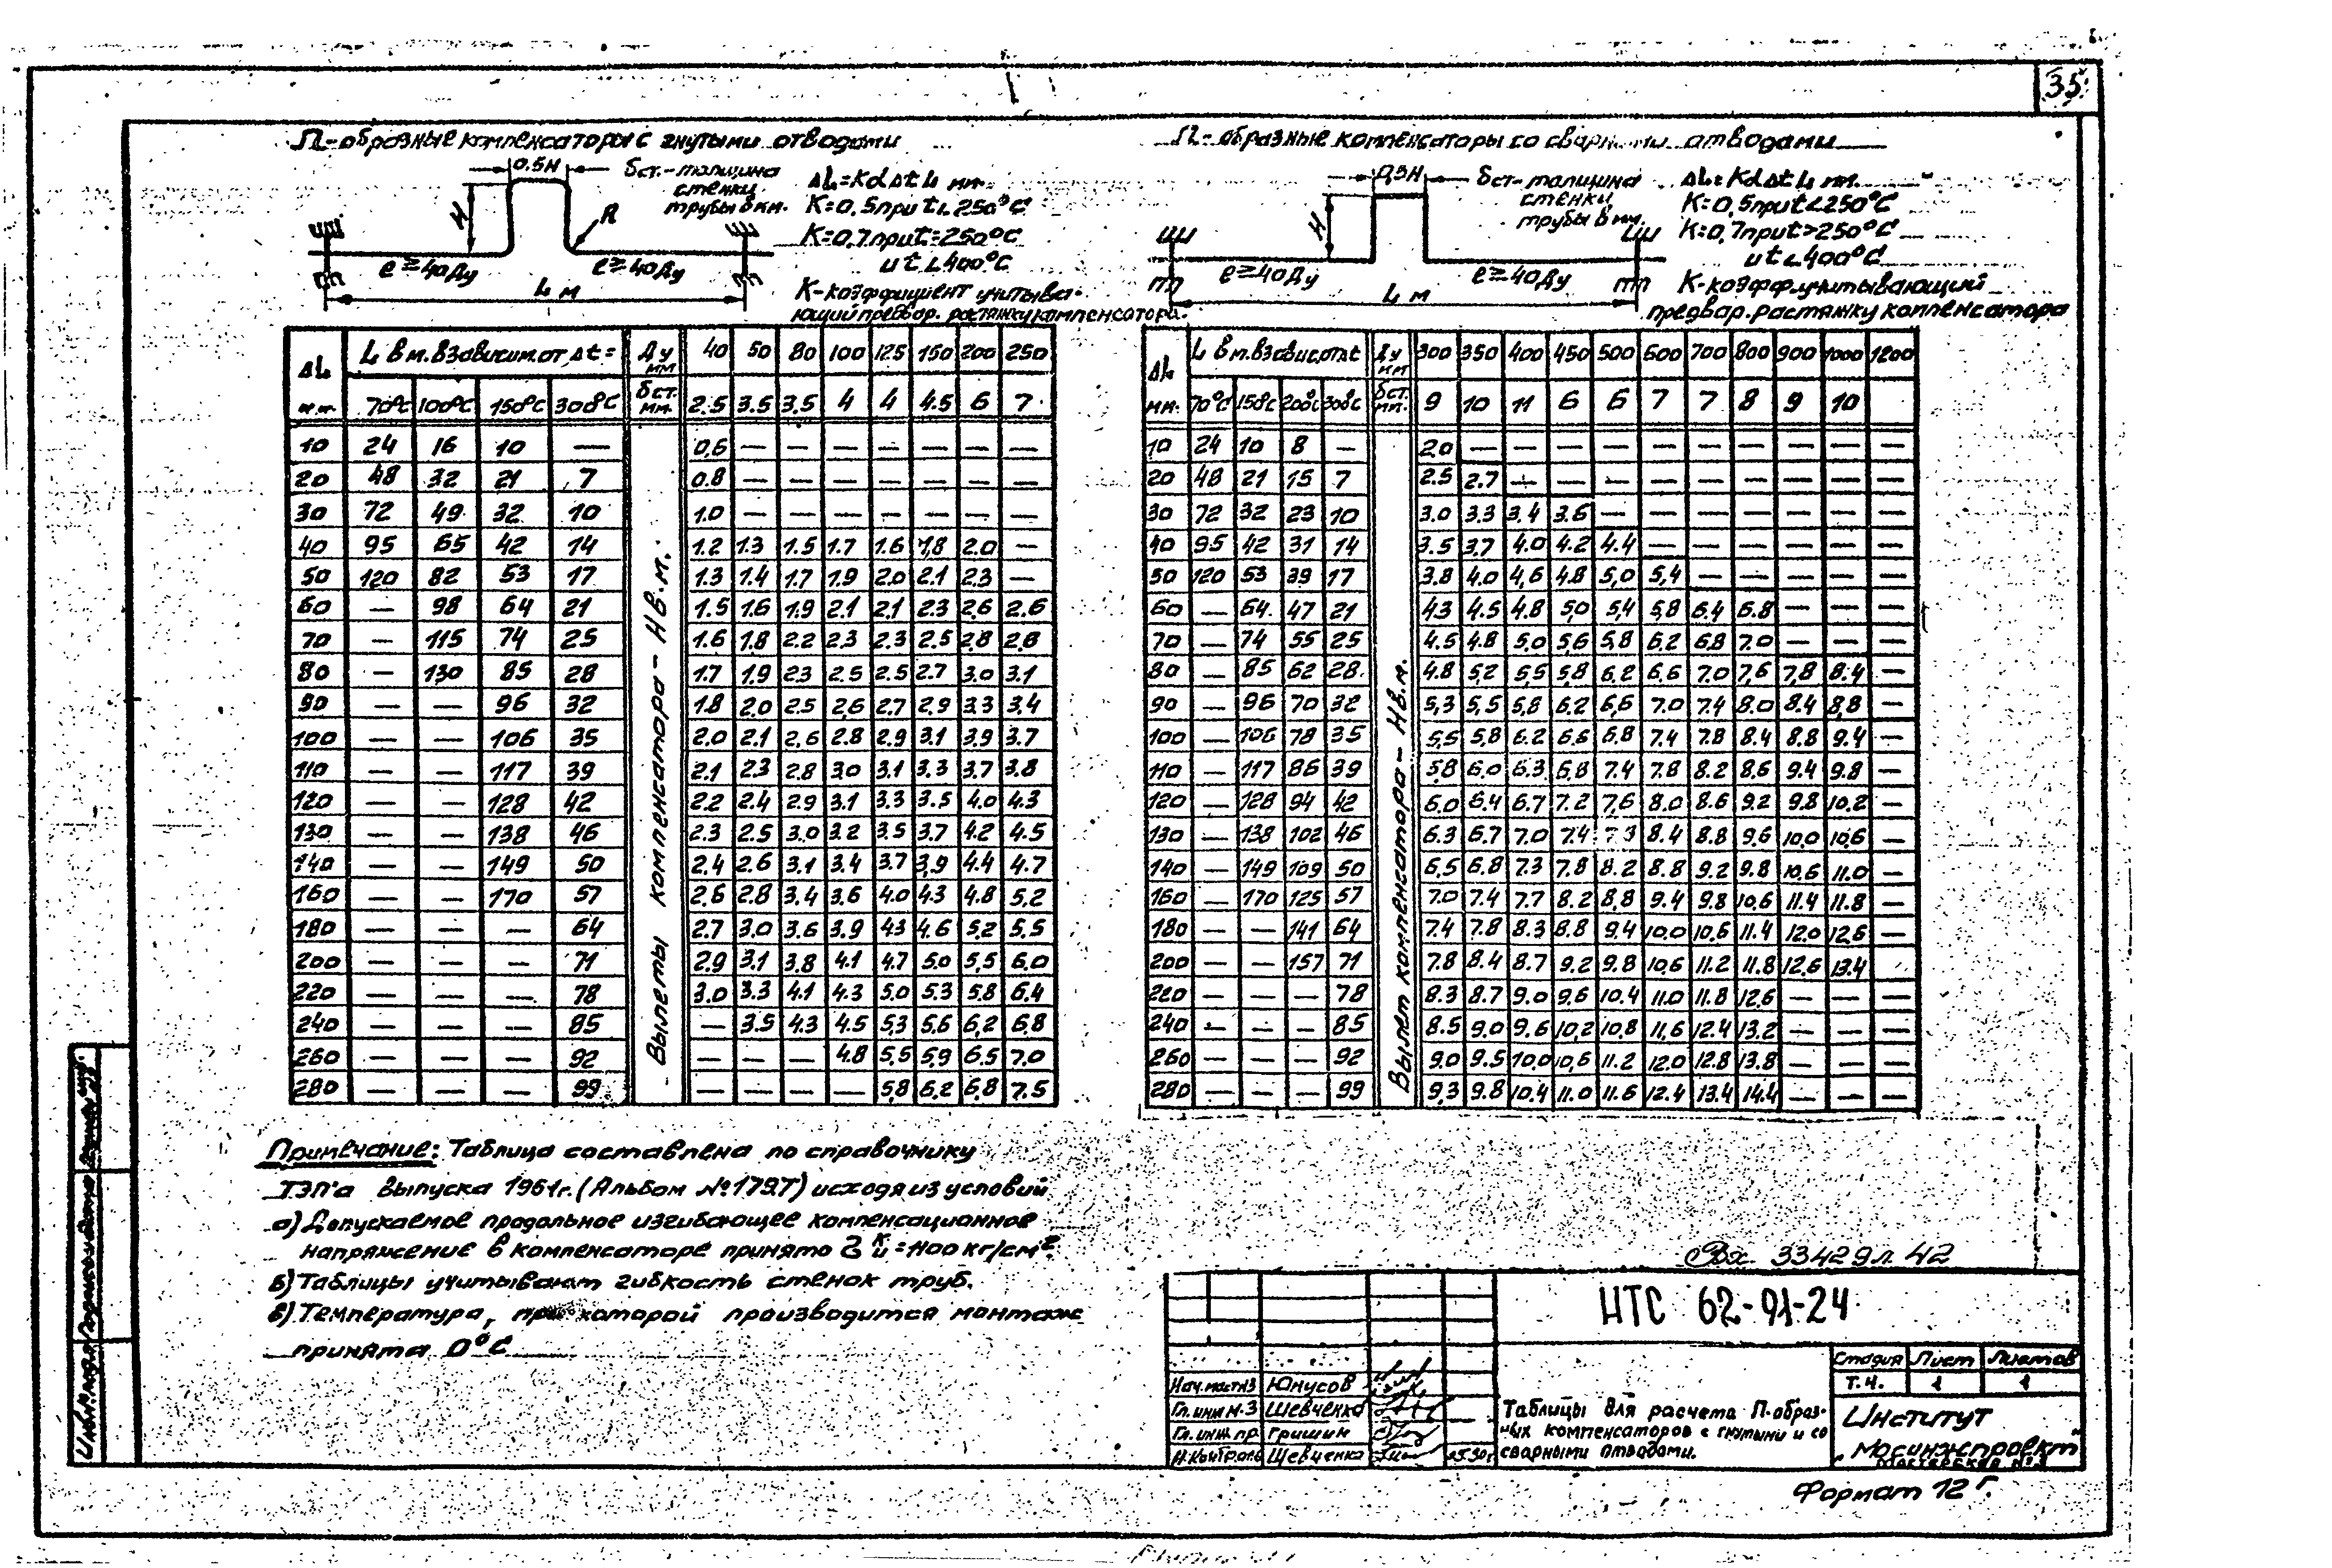 35
П-образные компенсаторы с гнутыми отводами
0.5Н
бст.-толщина
стенки
трубы в мм.
ΔL=КαΔt L мм.
К=0,5 при t<250°С
К=0,7 при t=250°С
и t<400°С
К-коэффициент учитыва-
ющий предвар. растяжку компенсатора.
Н
R
ℓ≥40Ду
ℓ≥40Ду
L м
П-образные компенсаторы со сварными отводами
0,5Н
бст-толщина
стенки
трубы в мм.
ΔL=КαΔt L мм.
К=0,5 при t<250°С
К=0,7 при t>250°С
и t<400°С
К-коэфф. учитывающий
предвар. растяжку компенсатора
Н
ℓ≥40Ду
ℓ≥40Ду
L м
ΔL м.м. L в м. в зависим. от Δt= Ду мм 40 50 80 100 125 150 200 250
70°С 100°С 150°С 300°С бст. мм. 2.5 3.5 3.5 4 4 4.5 6 7
Вылеты компенсатора - Н в м.
10 24 16 10 — 0,6 — — — — — — —
20 48 32 21 7 0.8 — — — — — — —
30 72 49 32 10 1.0 — — — — — — —
40 95 65 42 14 1.2 1.3 1.5 1.7 1.6 1,8 2.0 —
50 120 82 53 17 1.3 1.4 1.7 1.9 2.0 2.1 2.3 —
60 — 98 64 21 1.5 1.6 1.9 2.1 2,1 2.3 2,6 2.6
70 — 115 74 25 1.6 1.8 2.2 2.3 2.3 2.5 2,8 2.8
80 — 130 85 28 1.7 1.9 2.3 2.5 2.5 2.7 3.0 3.1
90 — — 96 32 1.8 2.0 2.5 2,6 2.7 2.9 3.3 3.4
100 — — 106 35 2.0 2.1 2.6 2.8 2.9 3.1 3.9 3.7
110 — — 117 39 2.1 2.3 2.8 3.0 3.1 3.3 3.7 3.8
120 — — 128 42 2.2 2.4 2.9 3.1 3.3 3.5 4.0 4.3
130 — — 138 46 2.3 2.5 3.0 3.2 3.5 3.7 4.2 4.5
140 — — 149 50 2.4 2.6 3.1 3.4 3.7 3,9 4.4 4.7
160 — — 170 57 2.6 2.8 3.4 3.6 4.0 4.3 4.8 5.2
180 — — — 64 2.7 3.0 3.6 3.9 4.3 4.6 5.2 5.5
200 — — — 71 2.9 3.1 3.8 4.1 4.7 5.0 5,5 6.0
220 — — — 78 3.0 3.3 4.1 4.3 5.0 5.3 5.8 6.4
240 — — — 85 — 3.5 4.3 4.5 5,3 5.6 6,2 6,8
260 — — — 92 — — — 4.8 5.5 5.9 6.5 7.0
280 — — — 99 — — — — 5,8 6.2 6,8 7.5
ΔL мм. L в м. в завис. от Δt Ду мм 300 350 400 450 500 600 700 800 900 1000 1200
70°С 150°С 200°С 300°С бст. мм. 9 10 11 6 6 7 7 8 9 10
Вылет компенсатора - Н в м.
10 24 10 8 — 2.0 — — — — — — — — —
20 48 21 15 7 2.5 2.7 — — — — — — — —
30 72 32 23 10 3.0 3.3 3.4 3.6 — — — — — —
40 95 42 31 14 3.5 3.7 4.0 4.2 4.4 — — — — —
50 120 53 39 17 3.8 4.0 4,6 4.8 5,0 5,4 — — — —
60 — 64 47 21 4.3 4.5 4.8 5,0 5,4 5,8 6.4 6.8 — —
70 — 74 55 25 4.5 4.8 5.0 5,6 5,8 6.2 6,8 7.0 — —
80 — 85 62 28 4.8 5,2 5,5 5,8 6.2 6,6 7.0 7,6 7,8 8.4 —
90 — 96 70 32 5,3 5,5 5,8 6.2 6,6 7.0 7.4 8.0 8.4 8,8 —
100 — 106 78 35 5,5 5,8 6.2 6.6 6,8 7.4 7.8 8.4 8.8 9.4 —
110 — 117 86 39 5.8 6.0 6.3 6,8 7.4 7.8 8.2 8.6 9.4 9.8 —
120 — 128 94 42 6.0 6.4 6.7 7.2 7,6 8.0 8.6 9.2 9.8 10.2 —
130 — 138 102 46 6.3 6.7 7.0 7.4 8.4 8.8 9.6 10.0 10,6 —
140 — 149 109 50 6,5 6.8 7.3 7.8 8.2 8.8 9.2 9.8 10.6 11.0 —
160 — 170 125 57 7.0 7.4 7.7 8.2 8,8 9.4 9.8 10,6 11.4 11.8 —
180 — — 141 64 7.4 7.8 8.3 8.8 9.4 10.0 10,6 11.4 12.0 12.6 —
200 — — 157 71 7.8 8.4 8.7 9.2 9.8 10,6 11.2 11.8 12.6 13.4
220 — — — 78 8.3 8.7 9.0 9.6 10.4 11.0 11.8 12.6 — — —
240 — — — 85 8.5 9.0 9.6 10,2 10,8 11,6 12.4 13.2 — — —
260 — — — 92 9.0 9.5 10.0 10,6 11.2 12.0 12.8 13.8 — — —
280 — — — 99 9,3 9.8 10.4 11.0 11.6 12.4 13.4 14.4 — — —
Примечание: Таблица составлена по справочнику
ТЭП'а выпуска 1961г. (Альбом №179Т) исходя из условий
а) Допускаемое продольное изгибающее компенсационное
напряжение в компенсаторе принято б к/и = 1100 кг/см²
б) Таблицы учитывают гибкость стенок труб.
в) Температура, при которой производится монтаж
принята 0°С
Вх. 33429л. 42
НТС 62-91-24
Стадия Лист Листов
Т.Ч. 1 1
Нач. маст N3 Юнусов
Гл. инж м.3 Шевченко
Гл. инж пр. Гришин
Н. контроль Шевченко
Таблицы для расчета П-образ-
ных компенсаторов с гнутыми и со
сварными отводами.
Институт
"Мосинжпроект"
Мастерская №3
Формат 12Г.
Инв.№подл. Подпись и дата